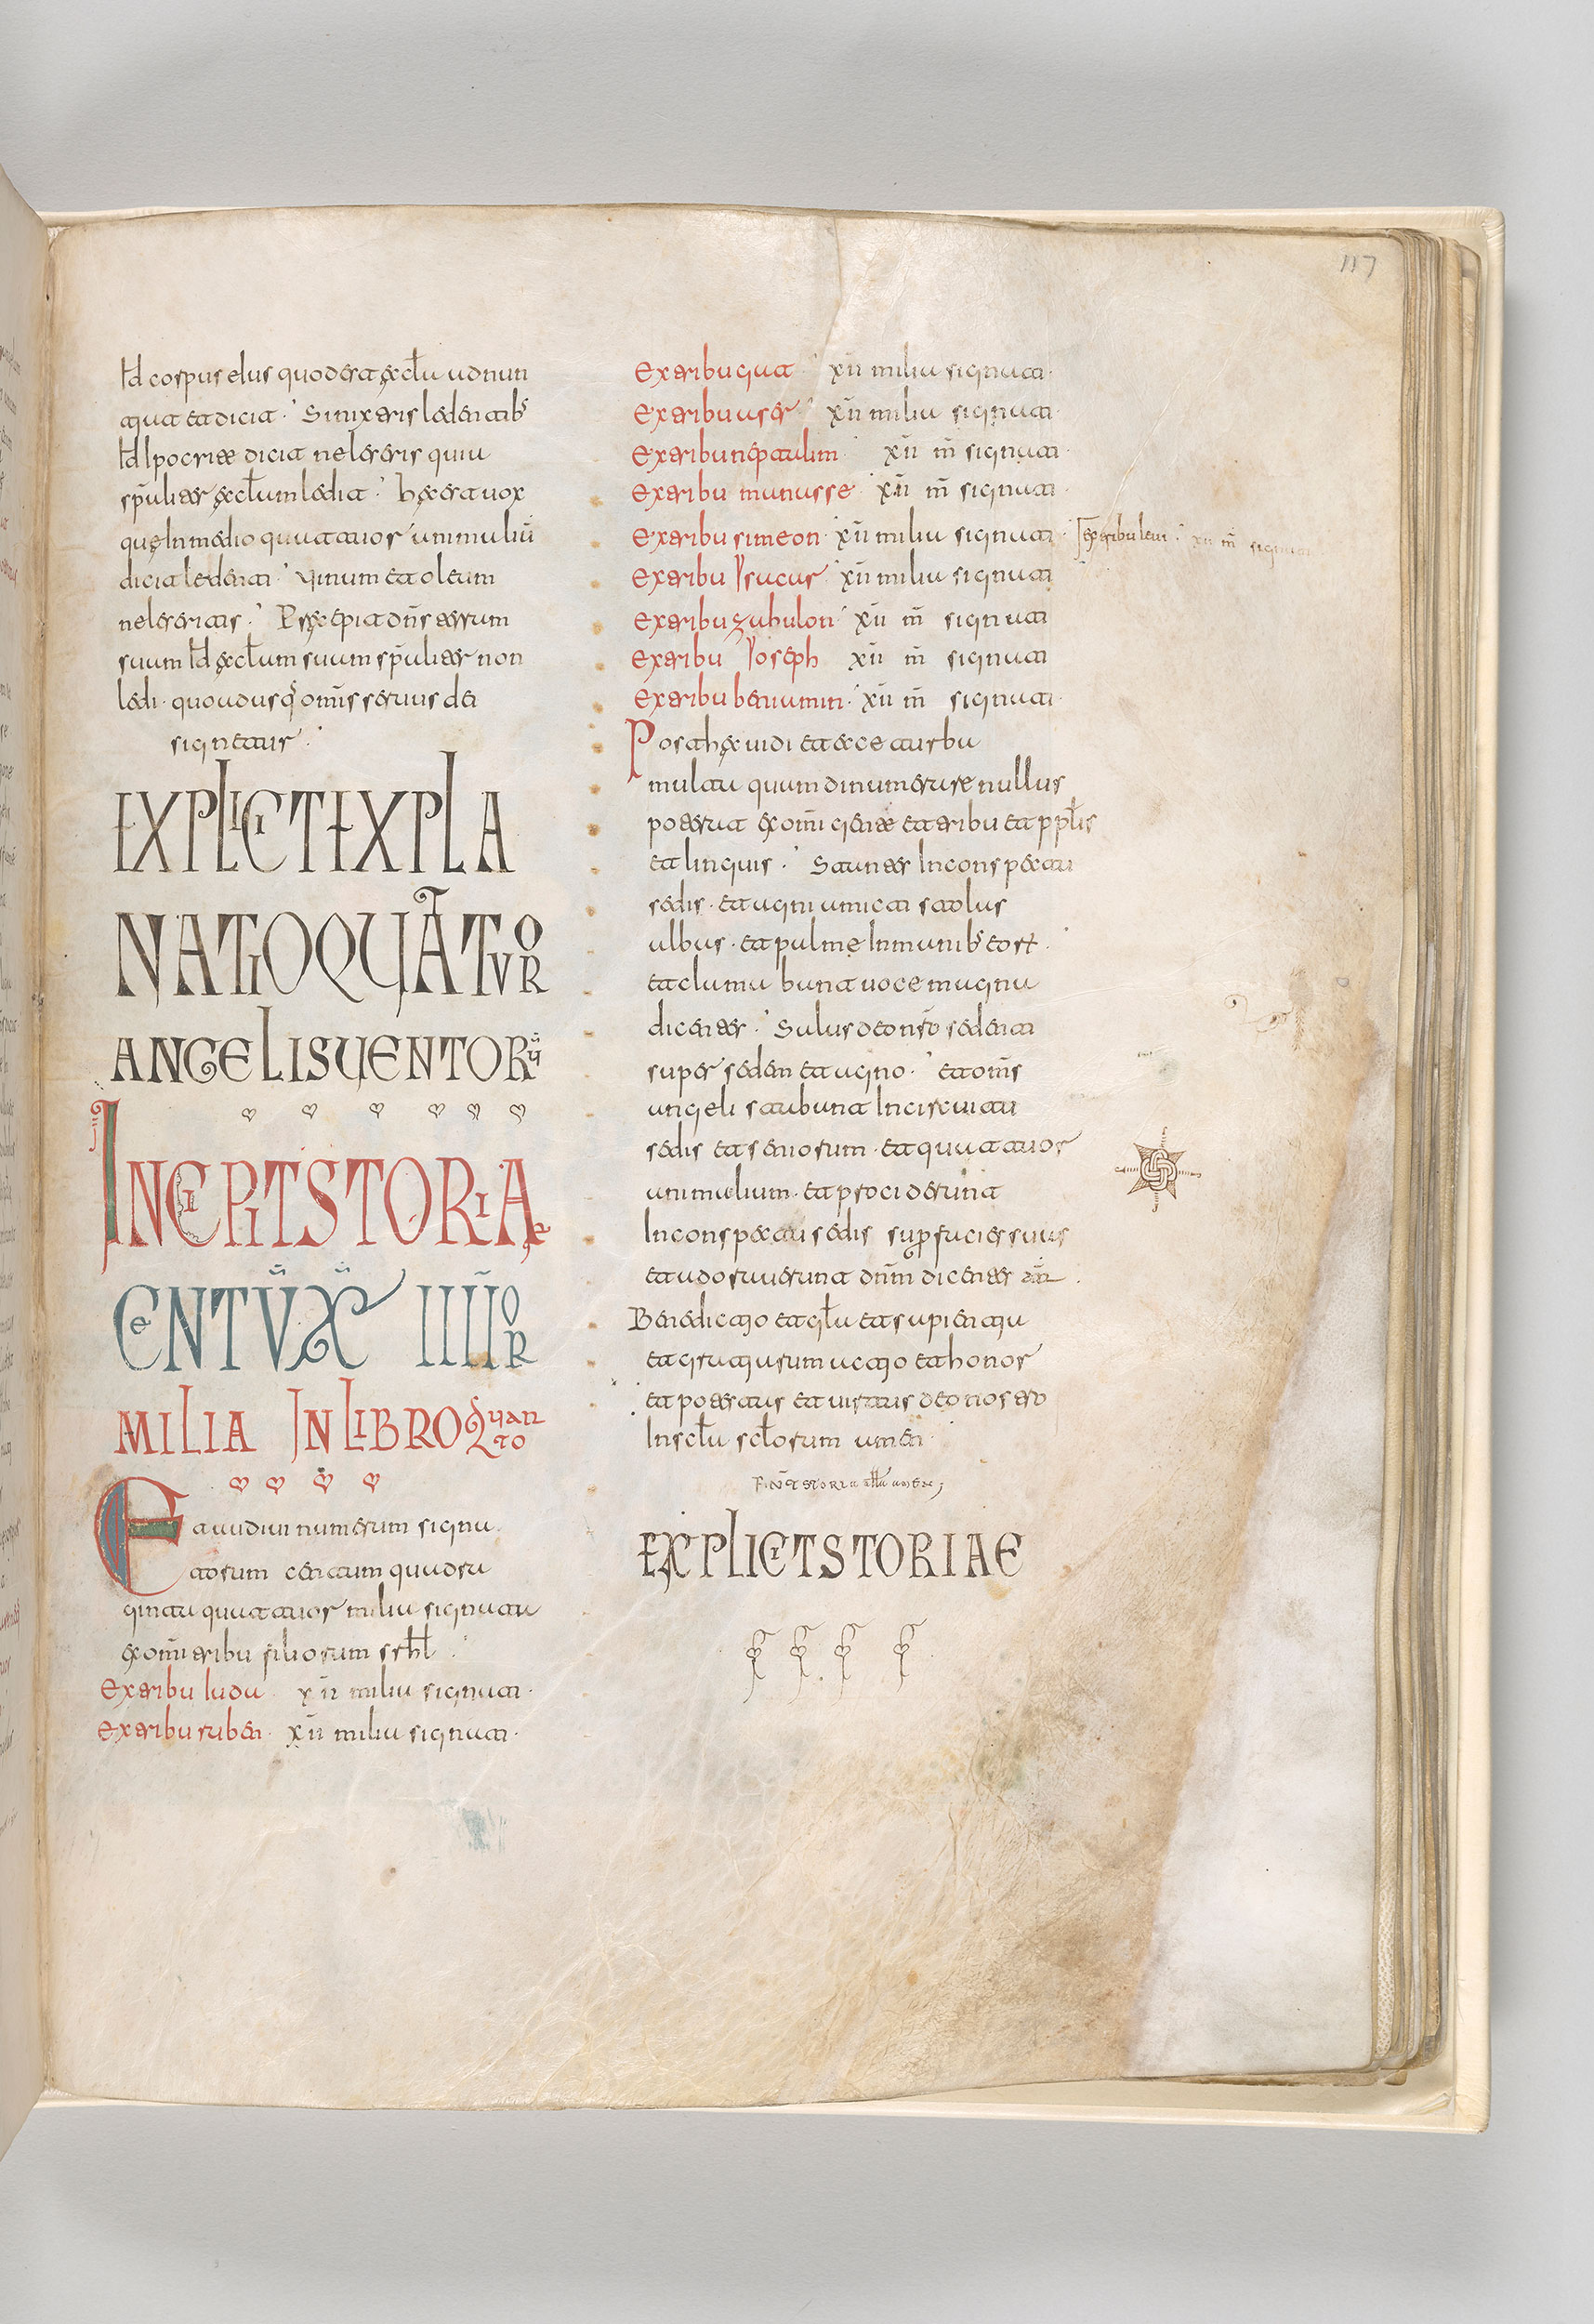 117
id corpus eius quod est ęcła adnun
tiat et dicit· Si uixeris ledent tibi
id ipocritae dicit ne leseris quia
spūaliter ęcłam ledit· hęc est uox
quę in medio quattuor animaliū
dicit ledent· uinum et oleum
ne leseritis· Pręcepit dn̄s
suum id ęcłam suam spūaliter non
ledi· quoadusq om̄s seruus dei
signetur·
EXPLICIT EXPLA
NATIO QUATTUOR
ANGELIS UENTORŪ
INCIPIT STORIAe
CENTŪ XL IIIIOR
MILIA IN LIBRO QUARTO
Et audiui numerum signa
torum centum quadra
ginta quattuor milia signati
ex om̄i tribu filiorum srhl·
Ex tribu iuda xii milia signati·
Ex tribu ruben· xii milia signati·
Ex tribu gad xii milia signati·
Ex tribu aser xii milia signati·
Ex tribu neptalim xii m̄ signati·
Ex tribu manasse xii m̄ signati·
Ex tribu simeon xii milia signati·
ex tribu leui· xii m̄ signati
Ex tribu isacar xii milia signati
Ex tribu zabulon xii m̄ signati
Ex tribu ioseph xii m̄ signati
Ex tribu beniamin· xii m̄ signati·
Post hęc uidi et ecce turba
multa quam dinumerare nullus
poterat ex om̄i gente et tribu et pplīs
et linguis· Stantes in conspectu
sedis· et agni amicti stolas
albas· et palmę in manib eor·
et clamabant uoce magna
dicentes· Salus deo nr̄o sedenti
super sedem et agno· et om̄s
angeli stabant in circuitu
sedis et seniorum· et quattuor
animalium· et prociderunt
in conspectu sedis sup facies suas
et adorauerunt dnm̄ dicentes am̄
Benedictio et gła et sapientia
et gratiarum actio et honor
et potestas et uirtus deo nostro
in scła sclorum amen·
FINIT STORIA allā amen;
EXPLICIT STORIAE